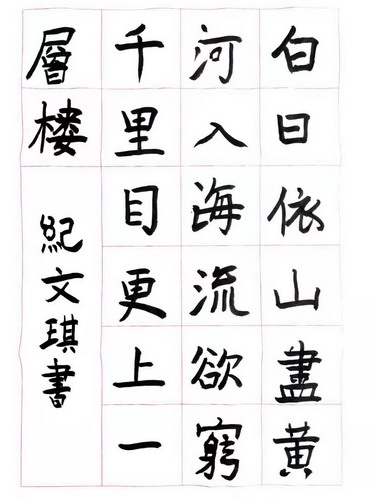 白日依山盡黃
河入海流欲窮
千里目更上一
層樓
紀文琪書